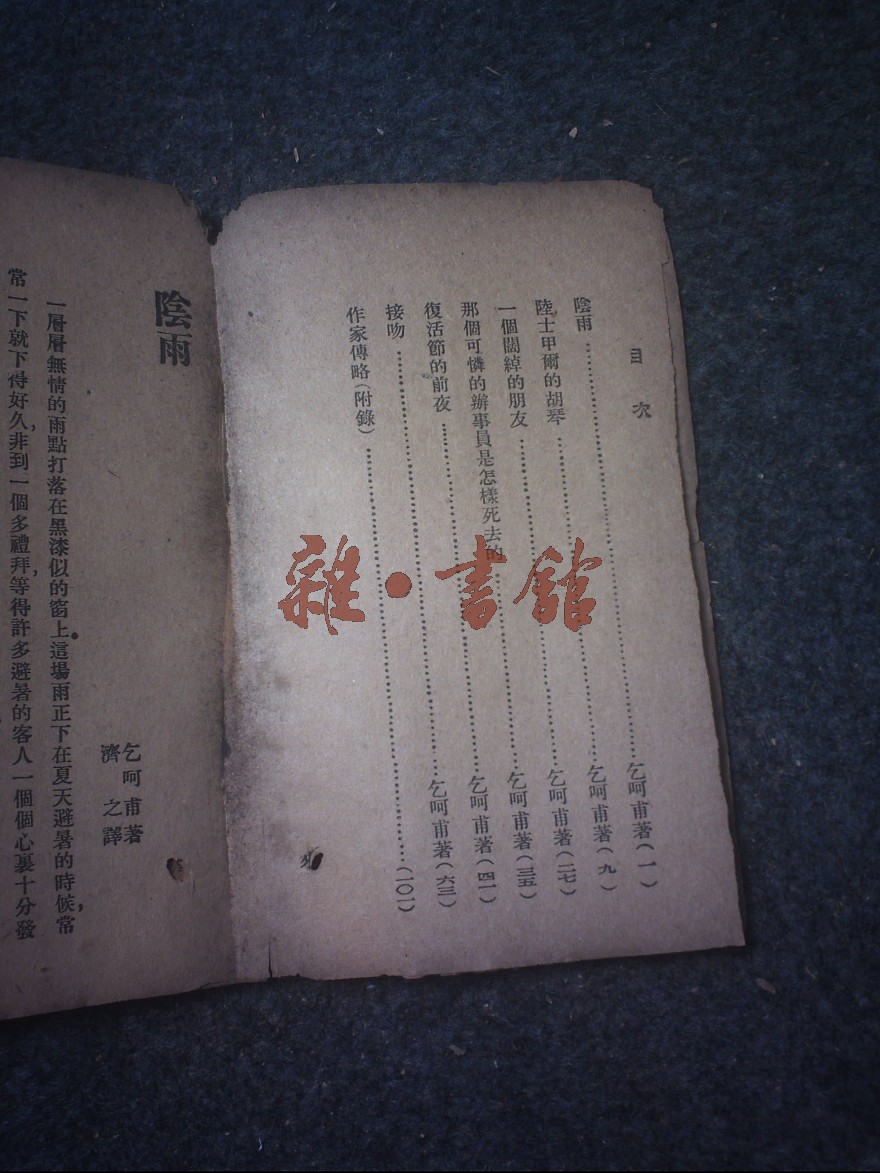 目次
陰雨……乞呵甫著(一)
陸士甲爾的胡琴……乞呵甫著(九)
一個闊綽的朋友……乞呵甫著(二七)
那個可憐的辦事員是怎樣死去的……乞呵甫著(三五)
復活節的前夜……乞呵甫著(四一)
接吻……乞呵甫著(六三)
作家傳略(附錄)……(一〇一)
雜•書館
陰雨
乞呵甫著
濟之譯
一層層無情的雨點打落在黑漆似的窗上。這場雨正下在夏天避暑的時候,常
常一下就下得好久,非到一個多禮拜,等得許多避暑的客人一個個心裏十分發